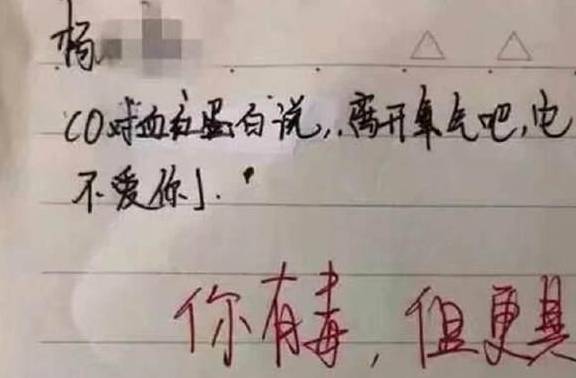 杨
CO对血红蛋白说,离开氧气吧,它
不爱你」.
你有毒,但更具